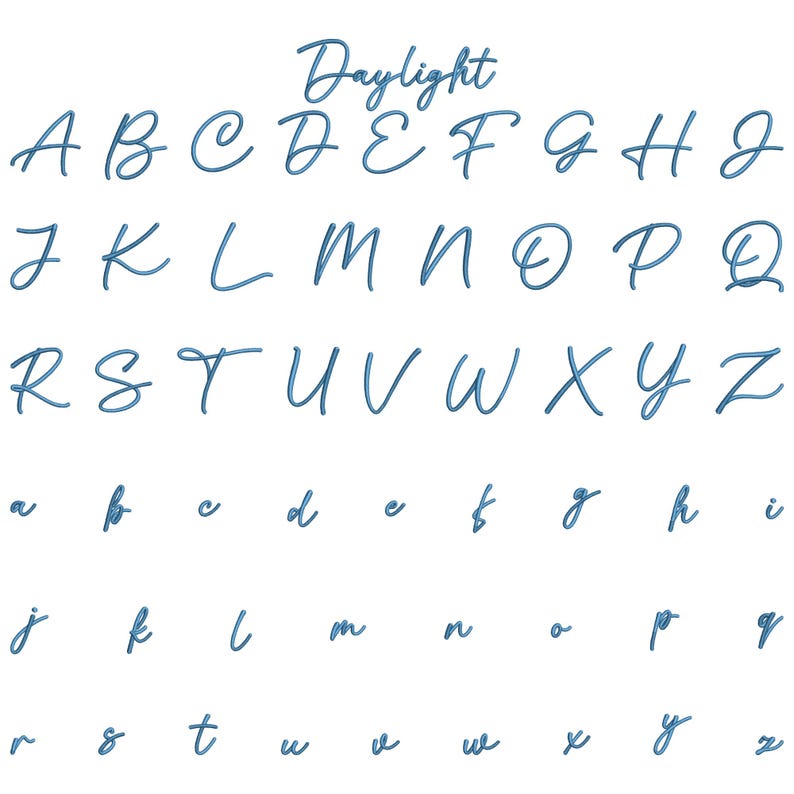 Daylight
A B C D E F G H I
J K L M N O P Q
R S T U V W X Y Z
a b c d e f g h i
j k l m n o p q
r s t u v w x y z